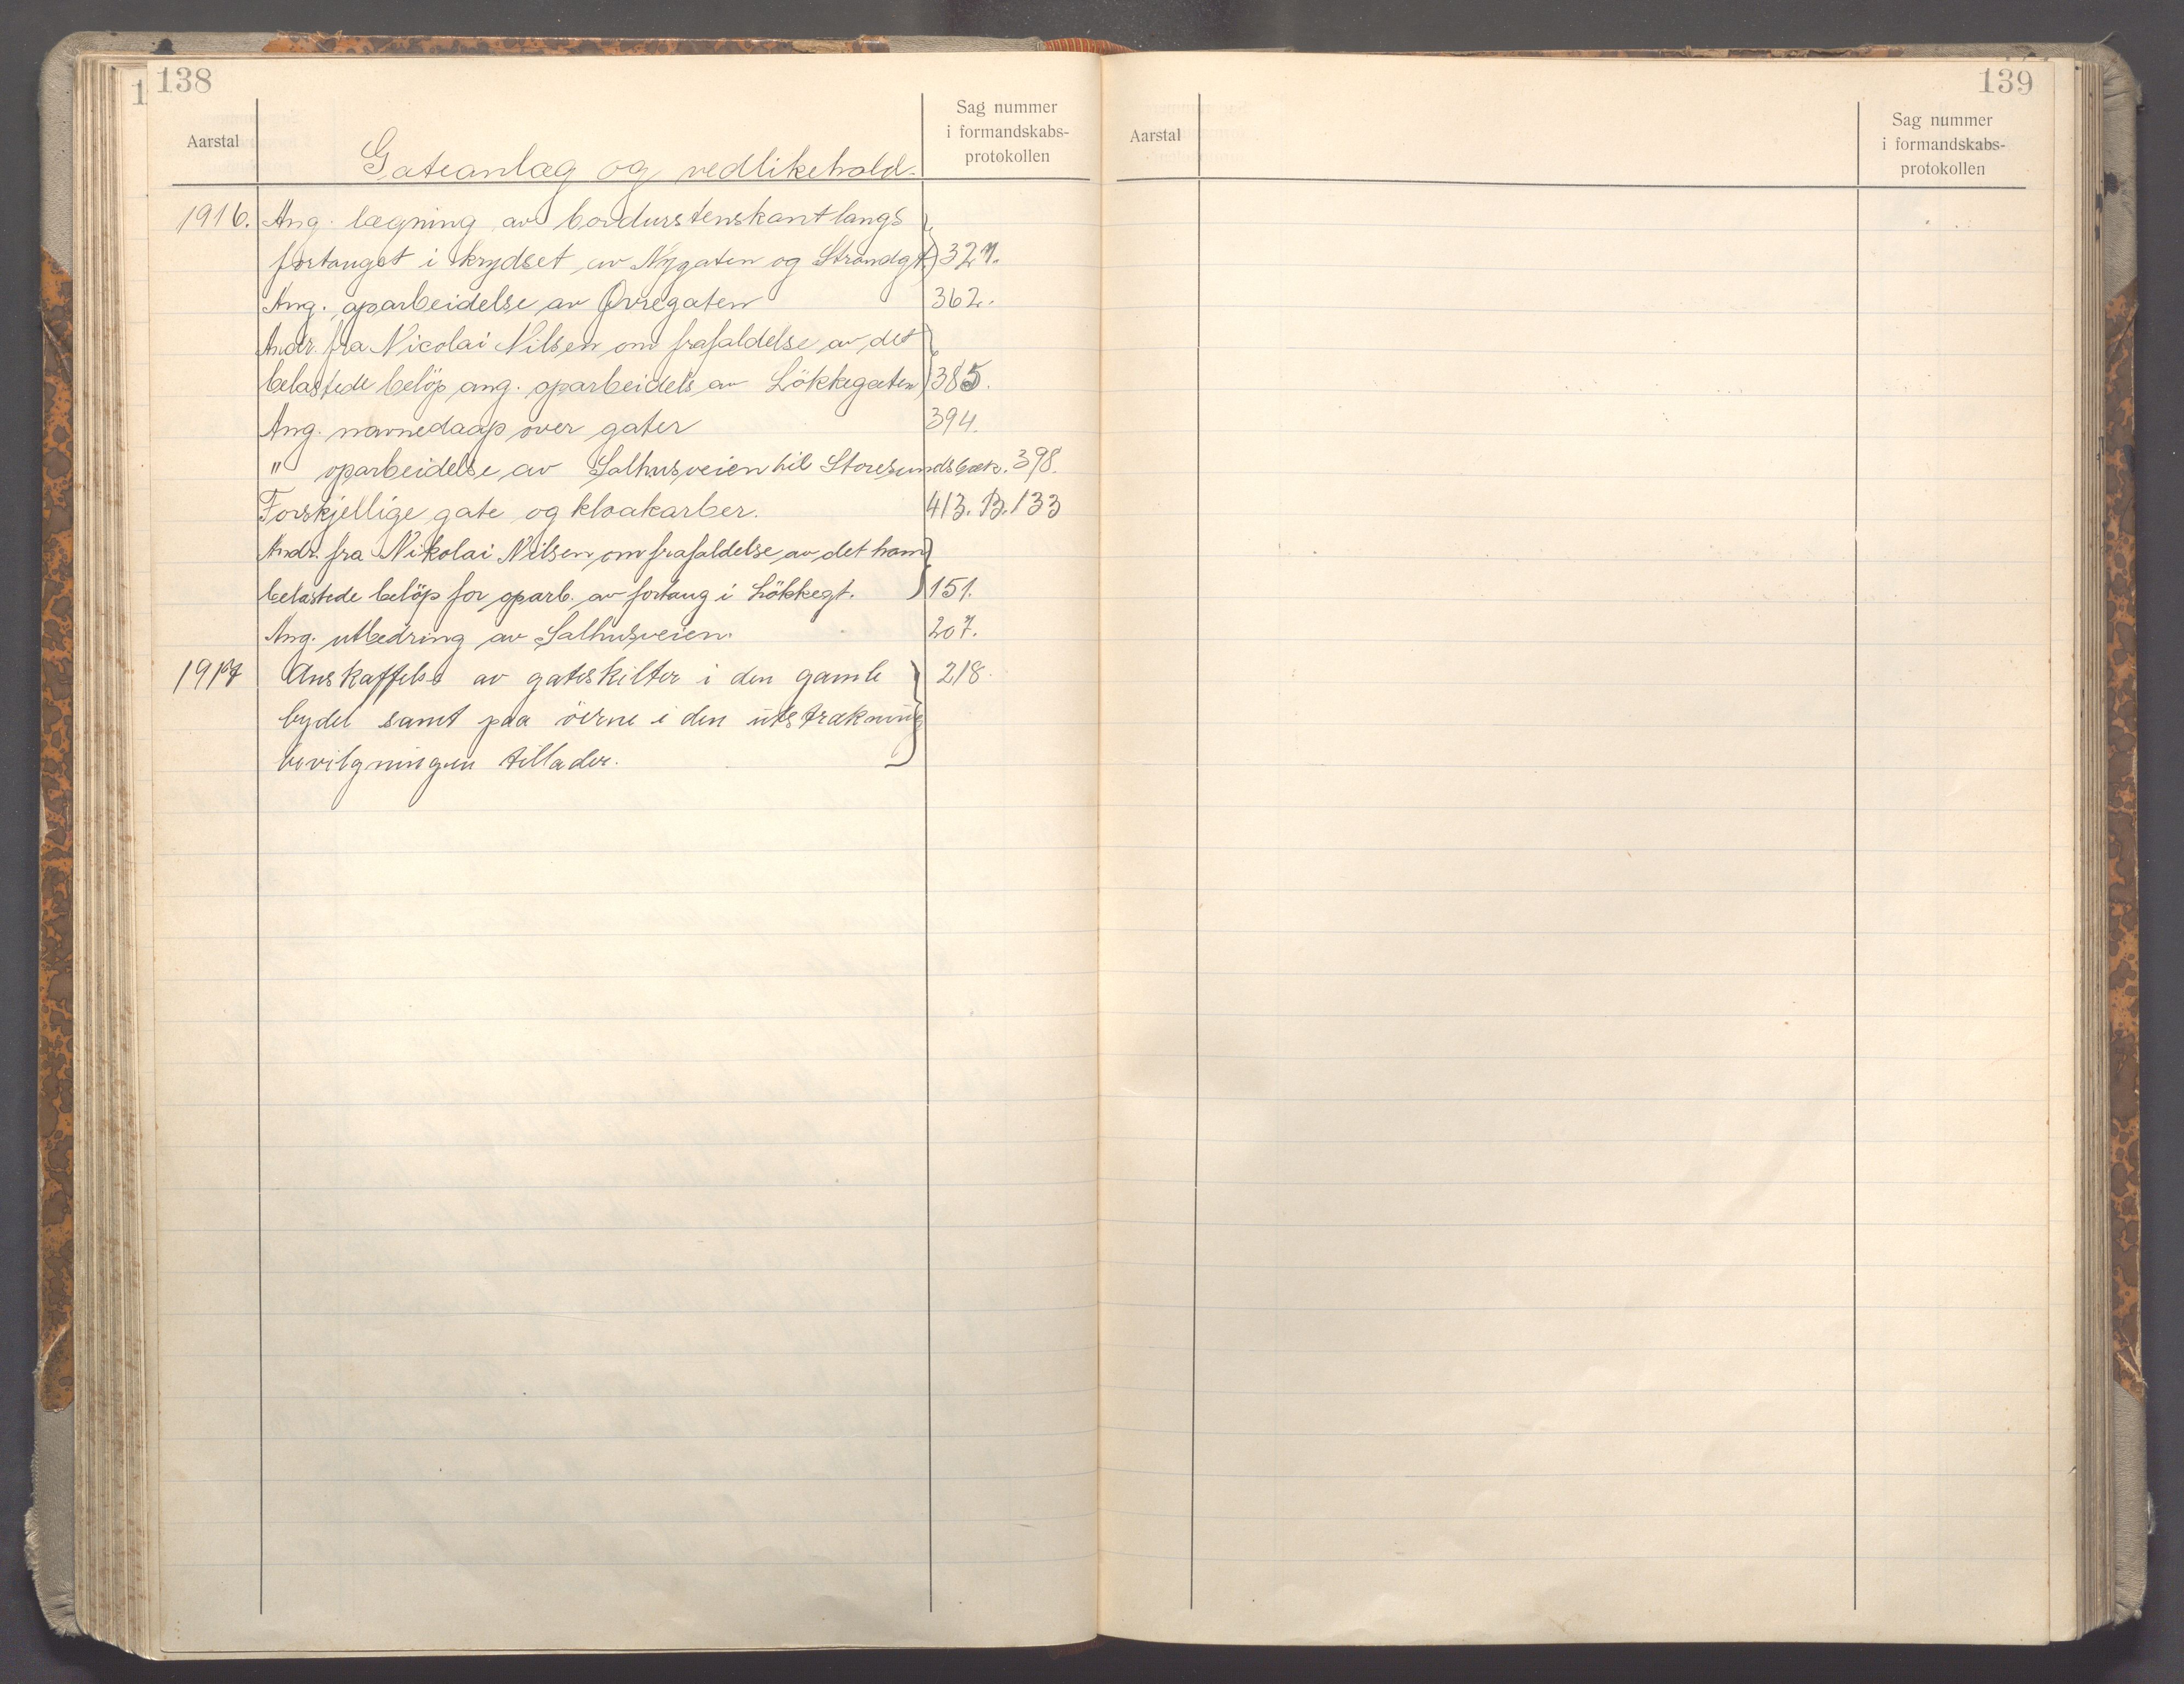 138
1
Aarstal
Gateanlæg og vedlikehold.
Sag nummer
i formandskabs-
protokollen
1916. Ang. lægning av bordurstenskant langs
fortauget i krydset av Nygaten og Strandgt. 327.
Ang. oparbeidelse av Øvregaten 362.
Andr. fra Nicolai Nilsen om frafaldelse av det
belastede beløp ang. oparbeidels av Lökkegaten 385.
Ang. navnedaap over gater 394.
" oparbeidelse av Salhusveien til Storesundsbæk. 398.
Forskjellige gate og kloakarber. 413. B. 133
Andr. fra Nikolai Nilsen om frafaldelse av det ham
belastede belöp for oparb. av fortaug i Lökkegt. 151.
Ang. utbedring av Salhusveien. 207.
1917 Anskaffelse av gateskilter i den gamle 218.
bydel samt paa öerne i den utstrækning
bevilgningen tillader.
139
Aarstal
Sag nummer
i formandskabs-
protokollen